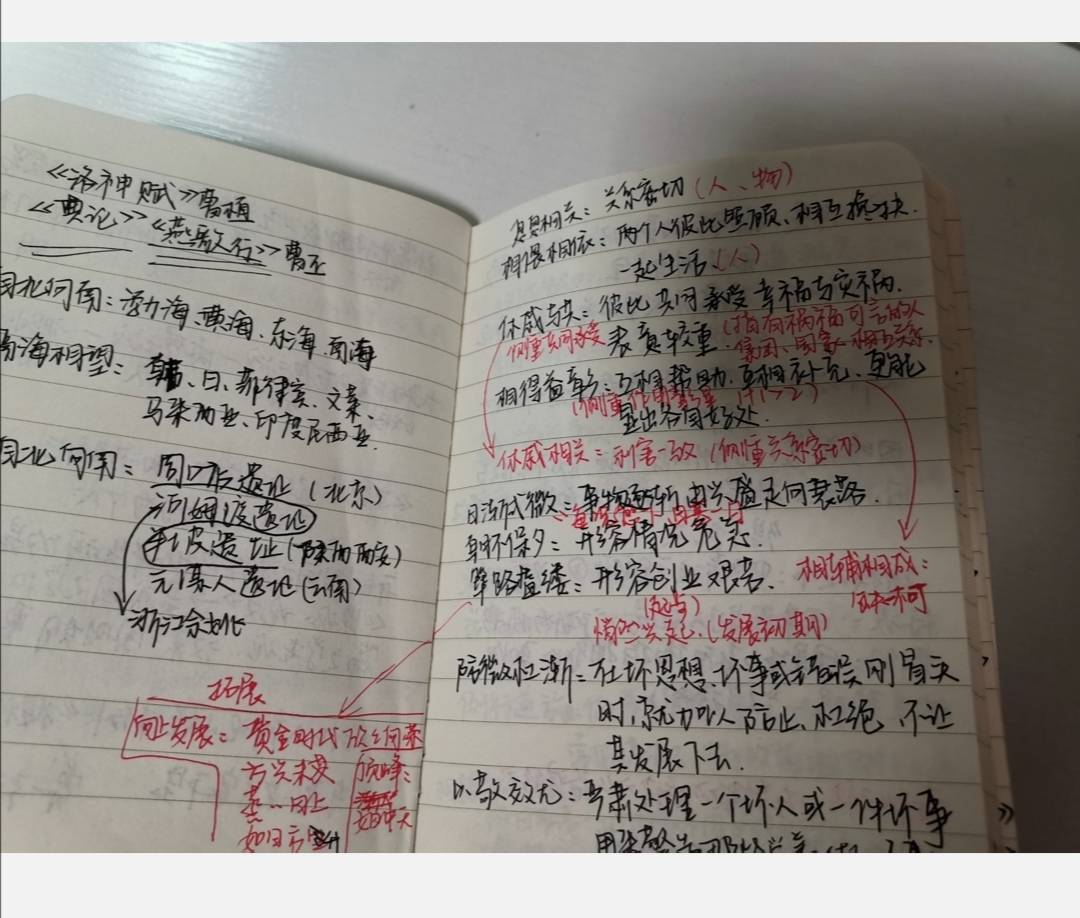 《洛神赋》曹植
《典论》《燕歌行》曹丕
自北向南：渤海、黄海、东海、南海
隔海相望：韩、日、菲律宾、文莱、
马来西亚、印度尼西亚.
自北向南：周口店遗址（北京）
河姆渡遗址
半坡遗址（陕西西安）
元谋人遗址（云南）
浙江余姚
拓展
向上发展：黄金时代
方兴未艾
蒸蒸日上
如日方升
欣欣向荣
顶峰：
如日中天
息息相关：关系密切（人、物）
相偎相依：两个人彼此照顾、相互搀扶.
一起生活（人）
休戚与共：彼比共同承受幸福与灾祸.
侧重共同承受
表责较重（指有祸福可言的人
集团、国家相互关系.
相得益彰：互相帮助.互相补充、更能
（1+1>2）
显出各自好处.
休戚相关：利害一致（侧重关系密切）
日渐式微：事物逐渐由兴盛走向衰落.
朝不保夕：形容情况危急.
筚路蓝缕：形容创业艰苦.
相辅相成：
缺一不可
（起点）
（发展初期）
防微杜渐：在坏思想、坏事或错误刚冒头
时，就加以防止、杜绝，不让
其发展下去.
以儆效尤：严肃处理一个坏人或一件坏事